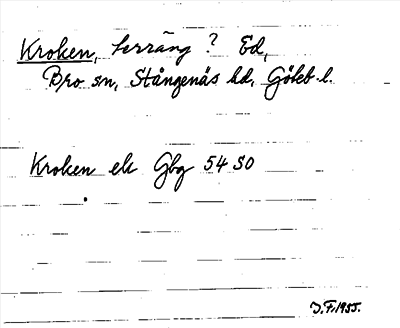 Kroken, terräng? Ed,
Bro sn, Stångenäs hd, Göteb. l.
Kroken ek Gbg 54 SO
J.F. 1955.